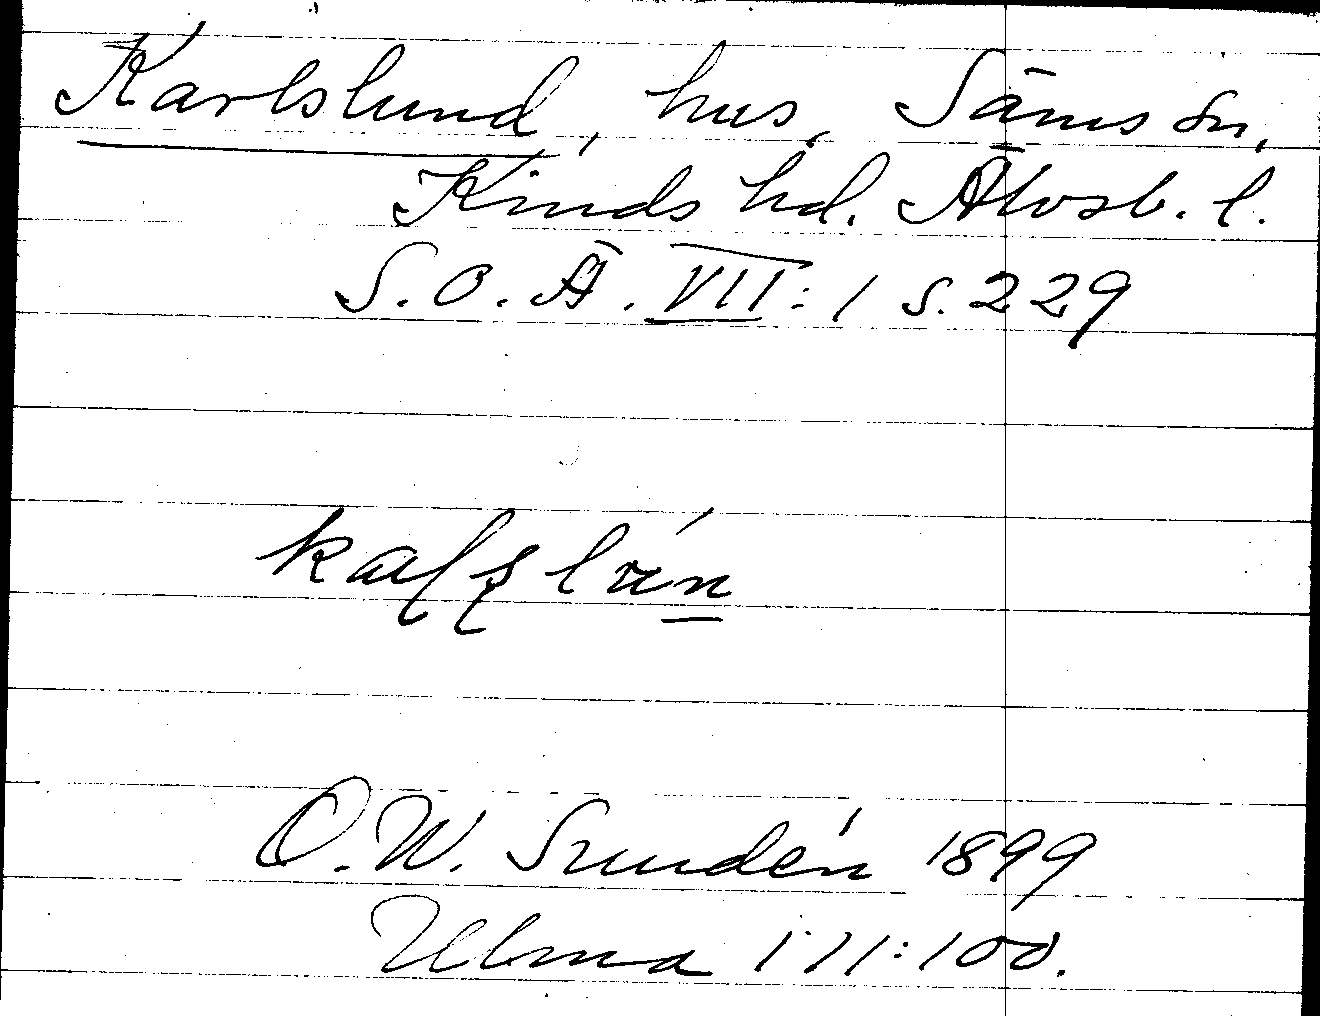 Karlslund, hus, Säms sn,
Kinds hd. Älvsb. l.
S. O. Ä. VII: 1 s. 229
O. W. Sundén 1899
Ulma 111:100.